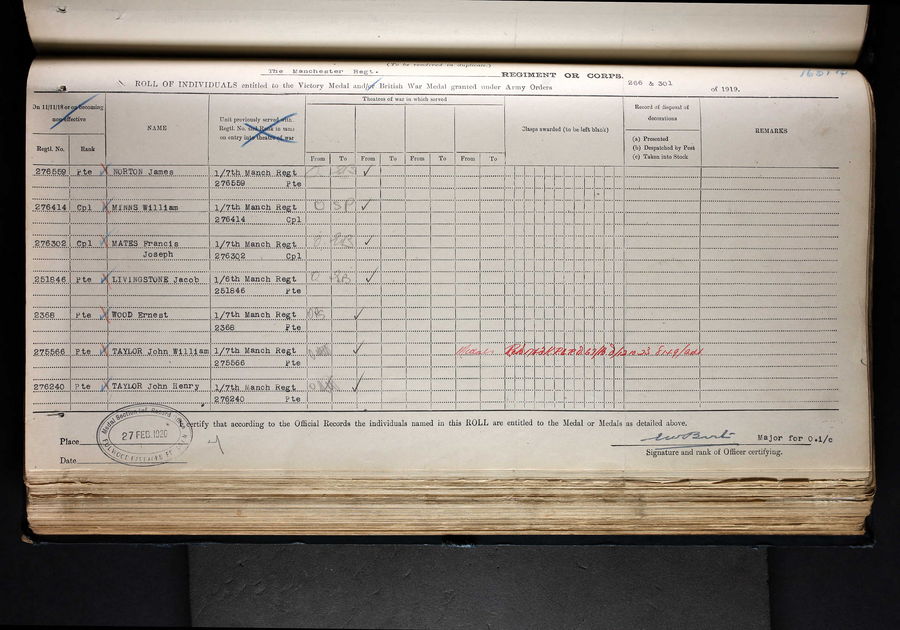 (To be rendered in duplicate.)
The Manchester Regt. REGIMENT OR CORPS.
ROLL OF INDIVIDUALS entitled to the Victory Medal and/or British War Medal granted under Army Orders 266 & 301 of 1919.
On 11/11/18 or on becoming non-effective
Regtl. No. Rank
NAME
Unit previously served with:
Regtl. No. and Rank in same
on entry into theatre of war
Theatres of war in which served
From To From To From To From To
Clasps awarded (to be left blank)
Record of disposal of decorations
(a) Presented
(b) Despatched by Post
(c) Taken into Stock
REMARKS
276559 Pte NORTON James 1/7th Manch Regt
276559 Pte
276414 Cpl MINNS William 1/7th Manch Regt
276414 Cpl
276302 Cpl MATES Francis 1/7th Manch Regt
Joseph 276302 Cpl
251846 Pte LIVINGSTONE Jacob 1/6th Manch Regt
251846 Pte
2368 Pte WOOD Ernest 1/7th Manch Regt
2368 Pte
275566 Pte TAYLOR John William 1/7th Manch Regt Medals
275566 Pte
276240 Pte TAYLOR John Henry 1/7th Manch Regt
276240 Pte
certify that according to the Official Records the individuals named in this ROLL are entitled to the Medal or Medals as detailed above.
Medal Section of Record
27 FEB. 1920
FULWOOD
Place
Date
Major for O.i/c
Signature and rank of Officer certifying.